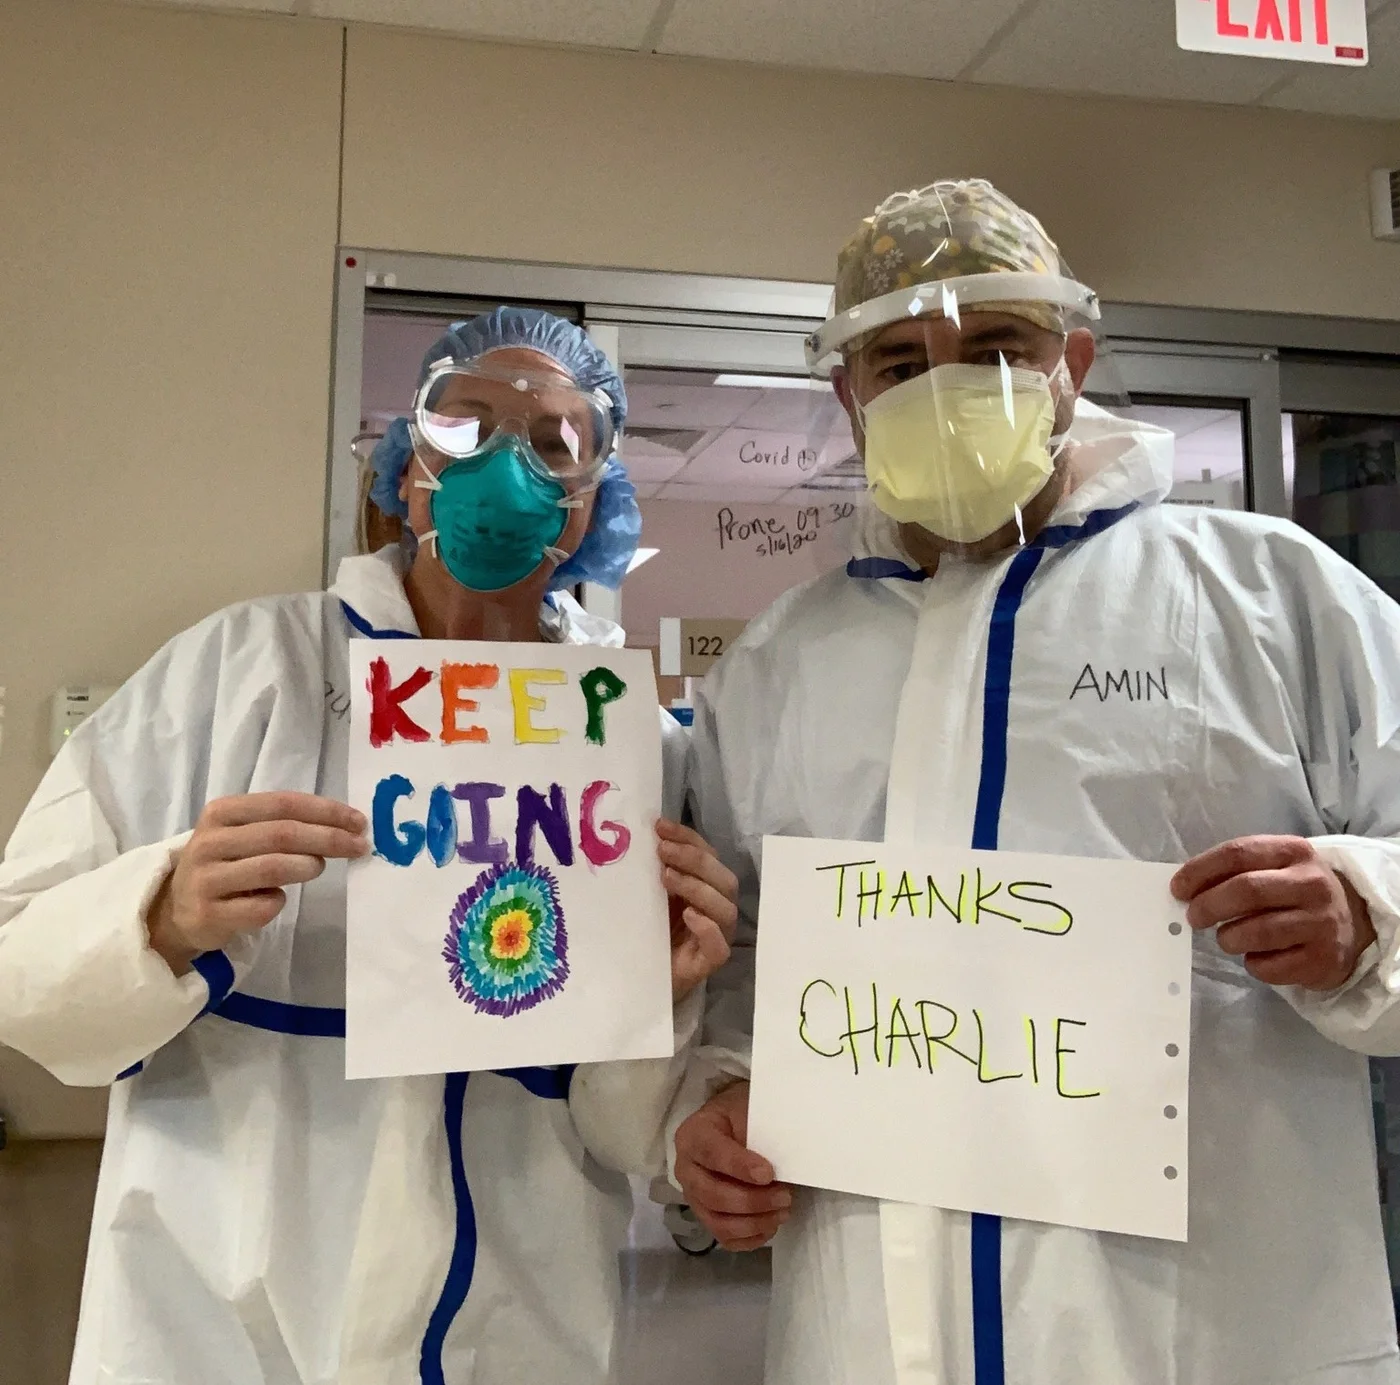 EXIT
Covid (+)
Prone 09:30
5/16/20
122
AMIN
KEEP
GOING
THANKS
CHARLIE